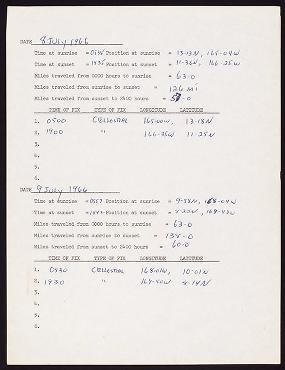 DATE 8 JULY 1966
Time at sunrise = 0535 Position at sunrise = 13-13N, 165-04W
Time at sunset = 1835 Position at sunset = 11-36N, 166-25W
Miles traveled from 0000 hours to sunrise = 63.0
Miles traveled from sunrise to sunset = 126 mi
Miles traveled from sunset to 2400 hours = .0
TIME OF FIX TYPE OF FIX LONGITUDE LATITUDE
1. 0500 CELESTIAL 165-00W, 13-18N
2. 1900 " 166-35W 11-25N
3.
4.
5.
6.
DATE 9 July 1966
Time at sunrise = 0557 Position at sunrise = 9-58N, 168-04W
Time at sunset = Position at sunset = 8-20N,
Miles traveled from 0000 hours to sunrise = 63.0
Miles traveled from sunrise to sunset = 138.0
Miles traveled from sunset to 2400 hours = 60.0
TIME OF FIX TYPE OF FIX LONGITUDE LATITUDE
1. 0530 CELESTIAL 168-01W, 10-01N
2. 1930 " 169-40W 8-14N
3.
4.
5.
6.